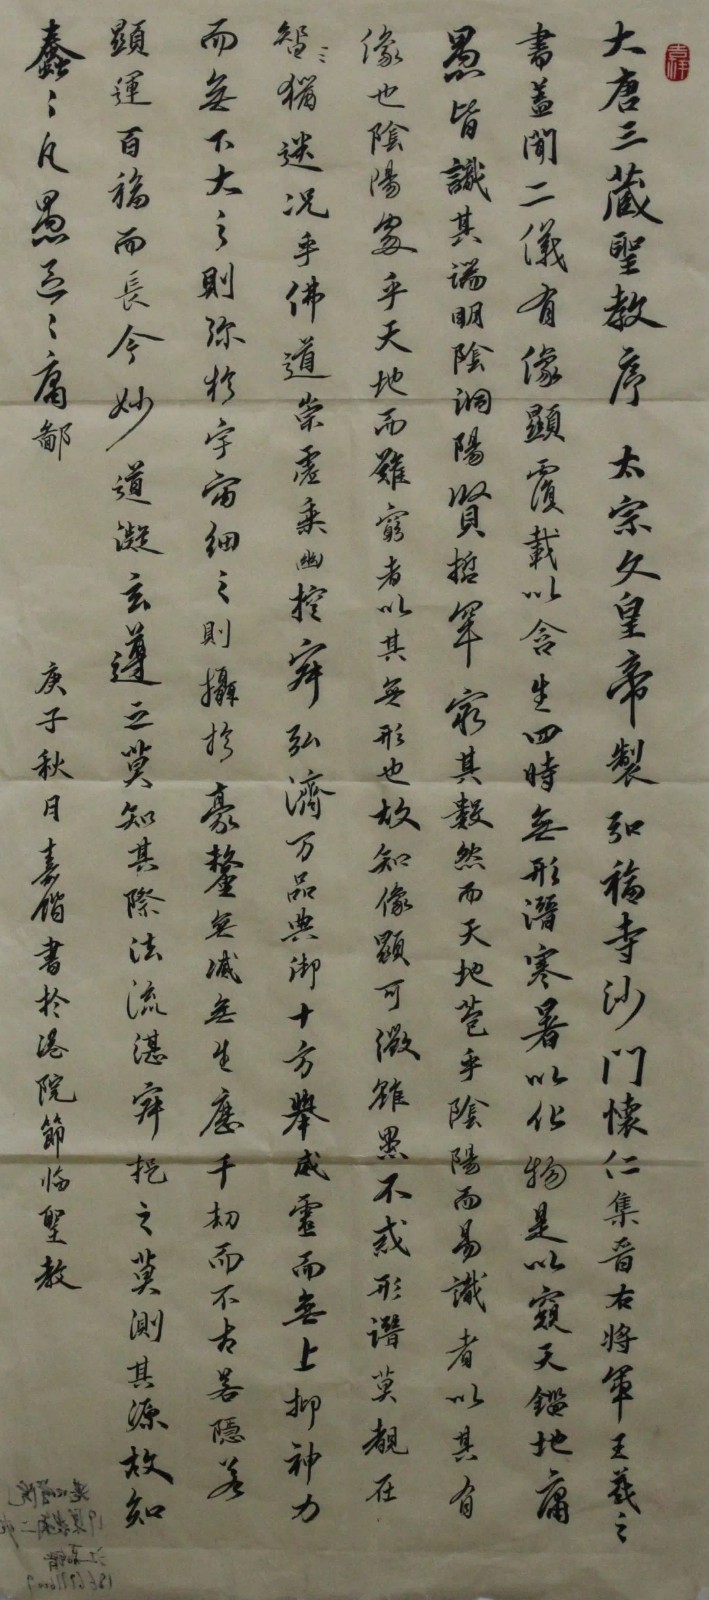 大唐三藏聖教序 太宗文皇帝製 弘福寺沙門懷仁集晉右將軍王羲之
書蓋聞二儀有像顯覆載以含生四時無形潛寒暑以化物是以窺天鑑地庸
愚皆識其端明陰洞陽賢哲罕窮其數然而天地苞乎陰陽而易識者以其有
像也陰陽處乎天地而難窮者以其無形也故知像顯可徵雖愚不惑形潛莫覩在
智ミ猶迷況乎佛道崇虛乘幽控寂弘濟万品典御十方舉威靈而無上抑神力
而無下大之則弥於宇宙細之則攝於豪釐無滅無生應千劫而不古若隱若
顯運百福而長今妙道凝玄遵之莫知其際法流湛寂挹之莫測其源故知
蠢ミ凡愚區ミ庸鄙
庚子秋月嘉偕書於港院節臨聖教